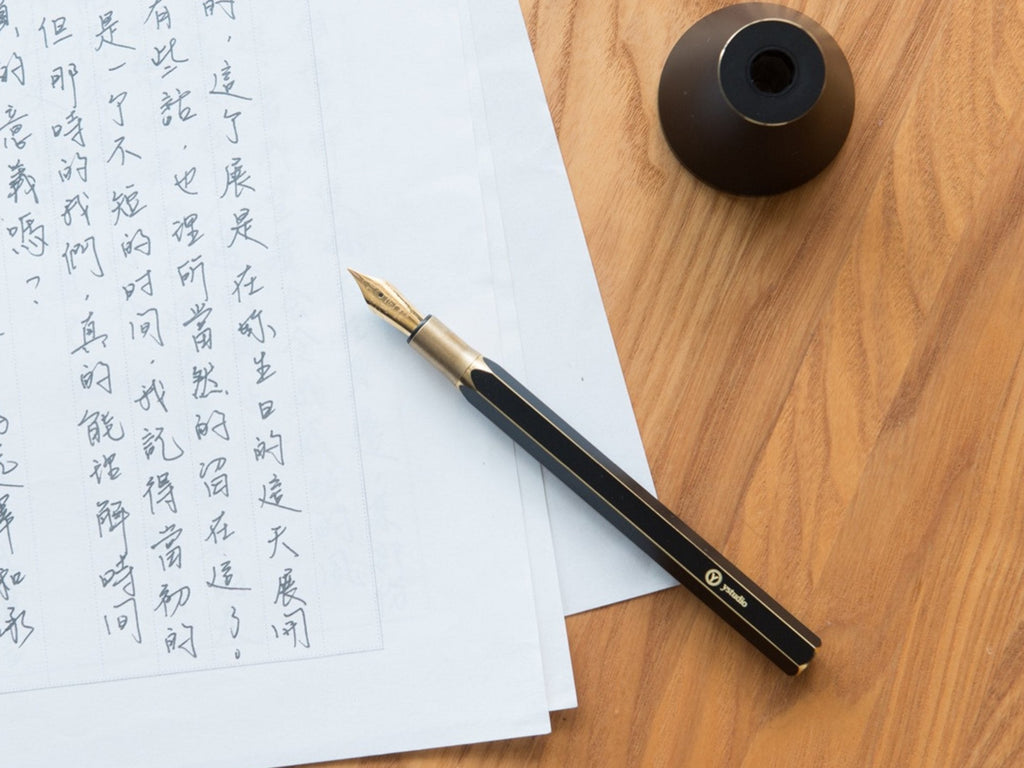 的，這个展是在妳生日的這天展開
有些話，也理所當然的留在這了。
是一个不短的时间，我記得當初的
但那時的我們，真的能理解時间
的意義嗎？
擇和承
ystudio